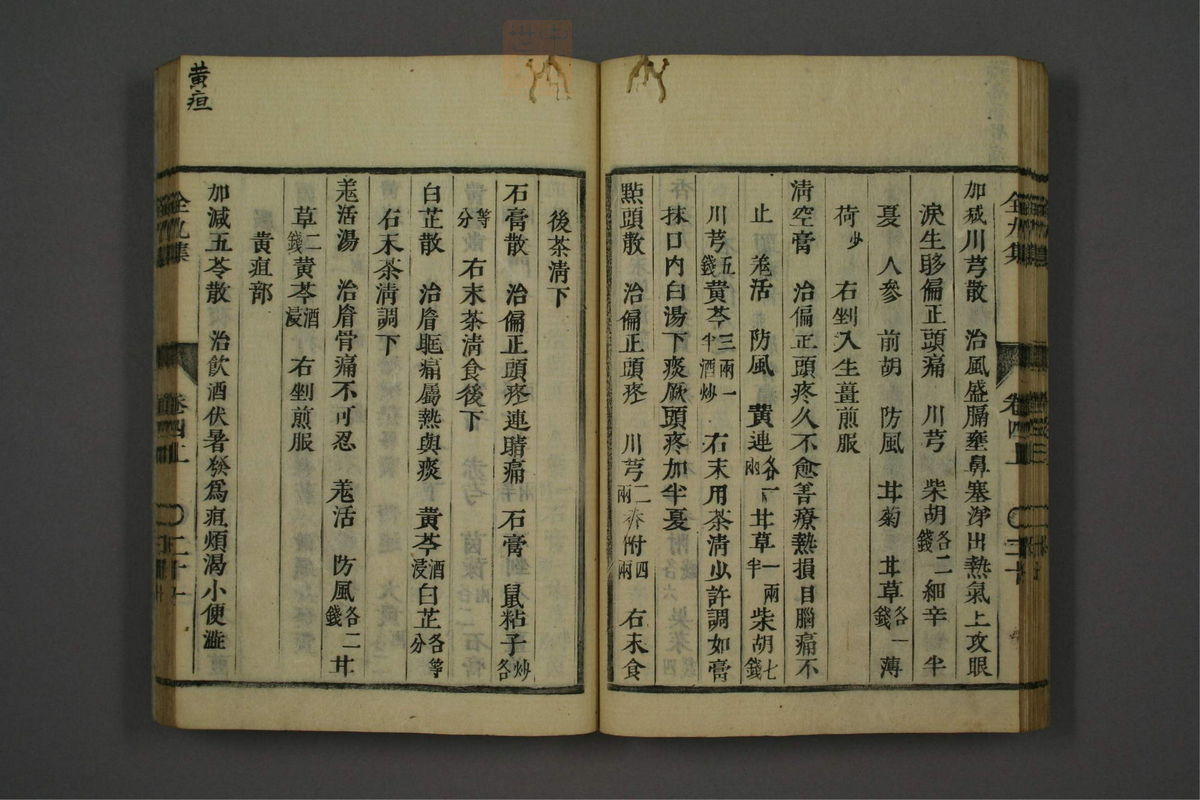 加減川芎散　治風盛膈壅鼻塞涕出熱氣上攻眼
淚生眵偏正頭痛　川芎　柴胡各二錢　細辛　半
夏　人參　前胡　防風　甘菊　甘草各一錢　薄
荷少　右剉入生薑煎服
淸空膏　治偏正頭疼久不愈善療熱損目腦痛不
止　羗活　防風　黄連各一兩　甘草一兩半　柴胡七錢
川芎五錢　黄芩三兩一半酒炒　右末用茶淸少許調如膏
抹口內白湯下痰厥頭疼加半夏
㸃頭散　治偏正頭疼　川芎二兩　香附四兩　右末食
後茶淸下
石膏散　治偏正頭疼連睛痛　石膏　鼠粘子炒各
等分　右末茶淸食後下
白芷散　治眉眶痛屬熱與痰　黄芩酒浸　白芷各等分
右末茶淸調下
羗活湯　治眉骨痛不可忍　羗活　防風各二錢　甘
草二錢　黄芩酒浸　右剉煎服
黄疸部
加減五苓散　治飮酒伏暑發爲疸煩渴小便澁
全九集
卷四上
二十
全九集
卷四上
二十一
黄疸